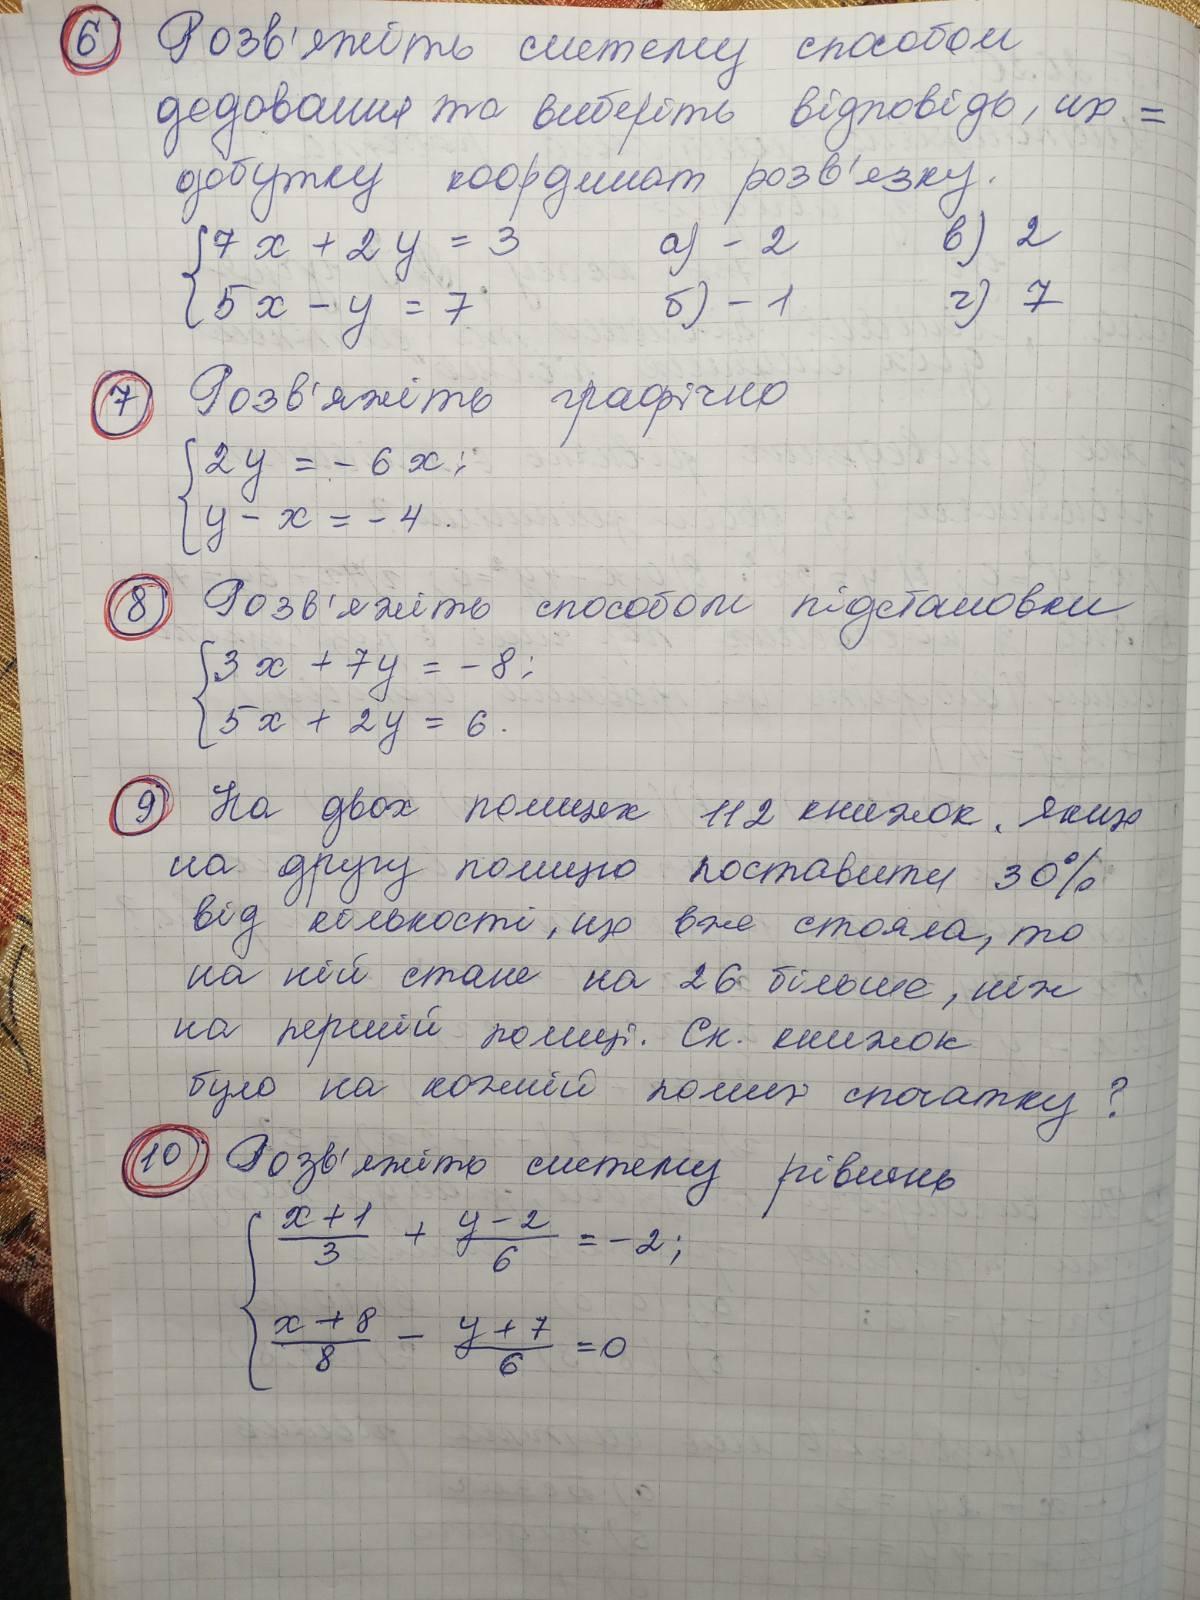 6 Розв'яжіть систему способом
додавання та виберіть відповідь, що =
добутку координат розв'язку.
{7x + 2y = 3 а) - 2 в) 2
{5x - y = 7 б) - 1 г) 7
7 Розв'яжіть графічно
{2y = - 6x;
{y - x = - 4.
8 Розв'яжіть способом підстановки
{3x + 7y = - 8;
{5x + 2y = 6.
9 На двох полицях 112 книжок. Якщо
на другу полицю поставити 30%
від кількості, що вже стояла, то
на ній стане на 26 більше, ніж
на першій полиці. Ск. книжок
було на кожній полиці спочатку?
10 Розв'яжіть систему рівнянь
{(x + 1)/3 + (y - 2)/6 = -2;
{(x + 8)/8 - (y + 7)/6 = 0